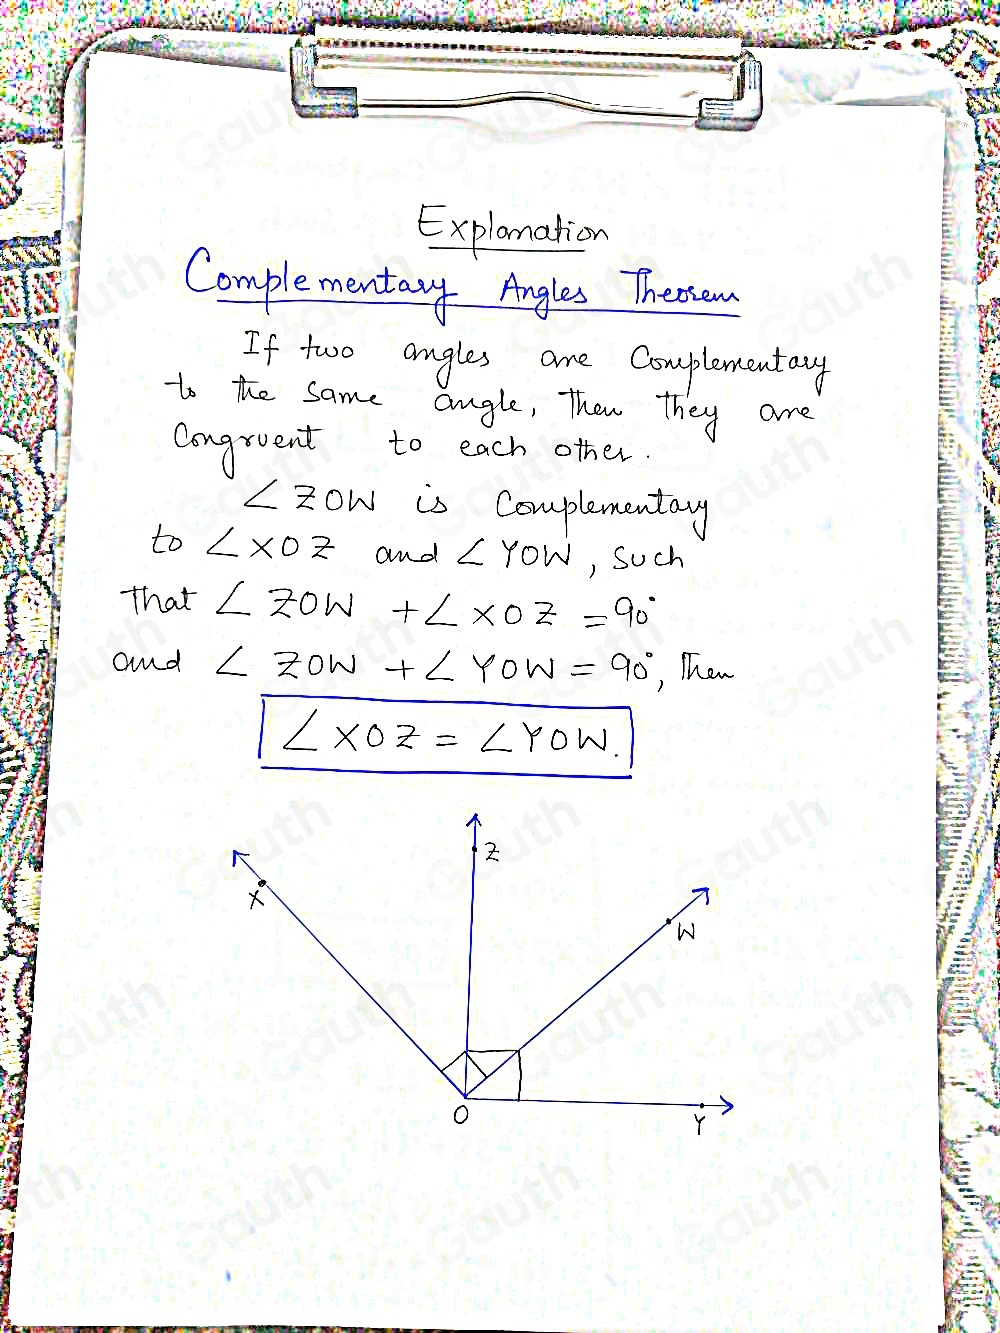 Explanation
Complementary Angles Theorem
If two angles are Complementary
to the same angle, then they are
Congruent to each other.
∠ZOW is Complementary
to ∠XOZ and ∠YOW, such
that ∠ZOW + ∠XOZ = 90°
and ∠ZOW + ∠YOW = 90°, Then
∠XOZ = ∠YOW.
Z
X
W
O
Y
Gauth